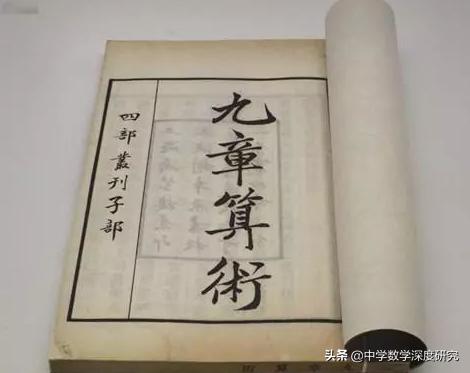 九章算術
四部叢刊子部
头条 @中学数学深度研究